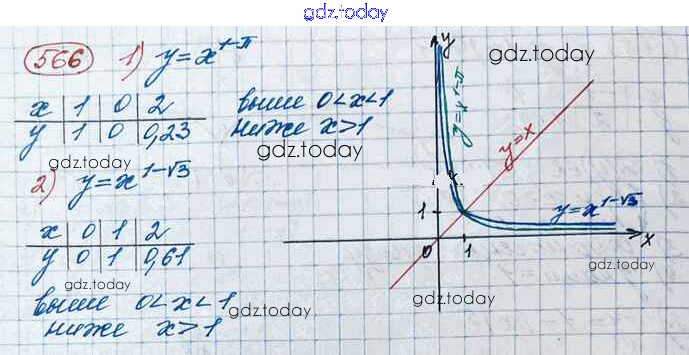 gdz.today
566 1) y = x^{1-π}
x | 1 | 0 | 2
y | 1 | 0 | 0,23
выше 0<x<1
ниже x>1
gdz.today
gdz.today
2) y = x^{1-√3}
x | 0 | 1 | 2
y | 0 | 1 | 0,61
gdz.today
выше 0<x<1
ниже x>1
gdz.today
y
gdz.today
y=x^{1-π}
y=x
1
y=x^{1-√3}
0 1 x
gdz.today
gdz.today